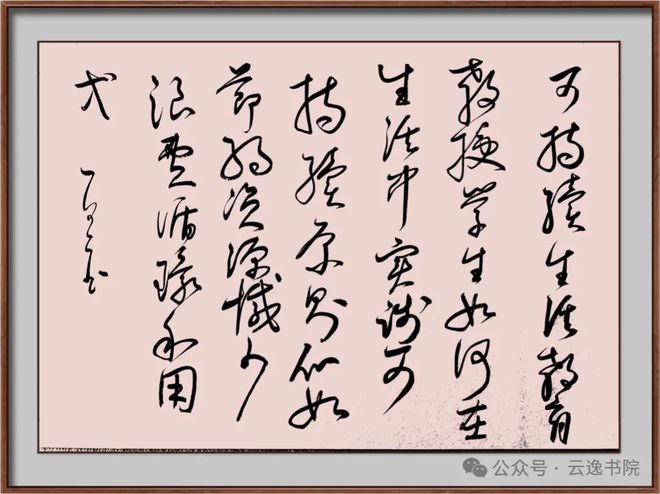 可持续生活教育
教授学生如何在
生活中实践可
持续原则例如
节约资源减少
浪费循环利用
式
公众号·云逸书院